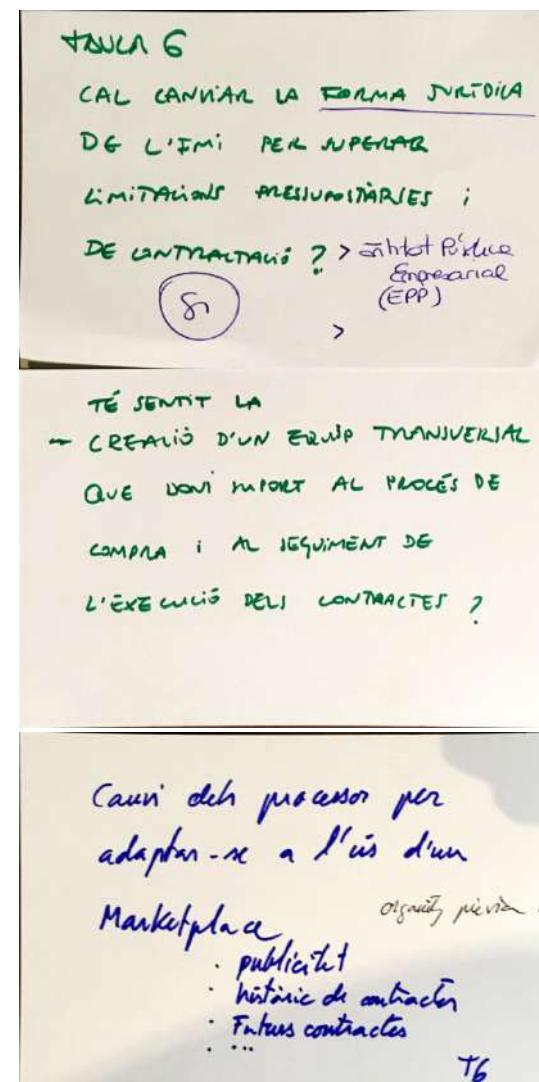 TAULA 6
CAL CANVIAR LA FORMA JURÍDICA
DE L'IMI PER SUPERAR
LIMITACIONS PRESSUPOSTÀRIES i
DE CONTRACTACIÓ ? > Entitat Pública
Empresarial
(EPP)
Sí
>
TÉ SENTIT LA
- CREACIÓ D'UN EQUIP TRANSVERSAL
QUE DONI SUPORT AL PROCÉS DE
COMPRA i AL SEGUIMENT DE
L'EXECUCIÓ DELS CONTRACTES ?
Canvi dels processos per
adaptar-se a l'ús d'un
Marketplace
prèvia
· publicitat
· històric de contractes
· Futurs contractes
· ...
T6